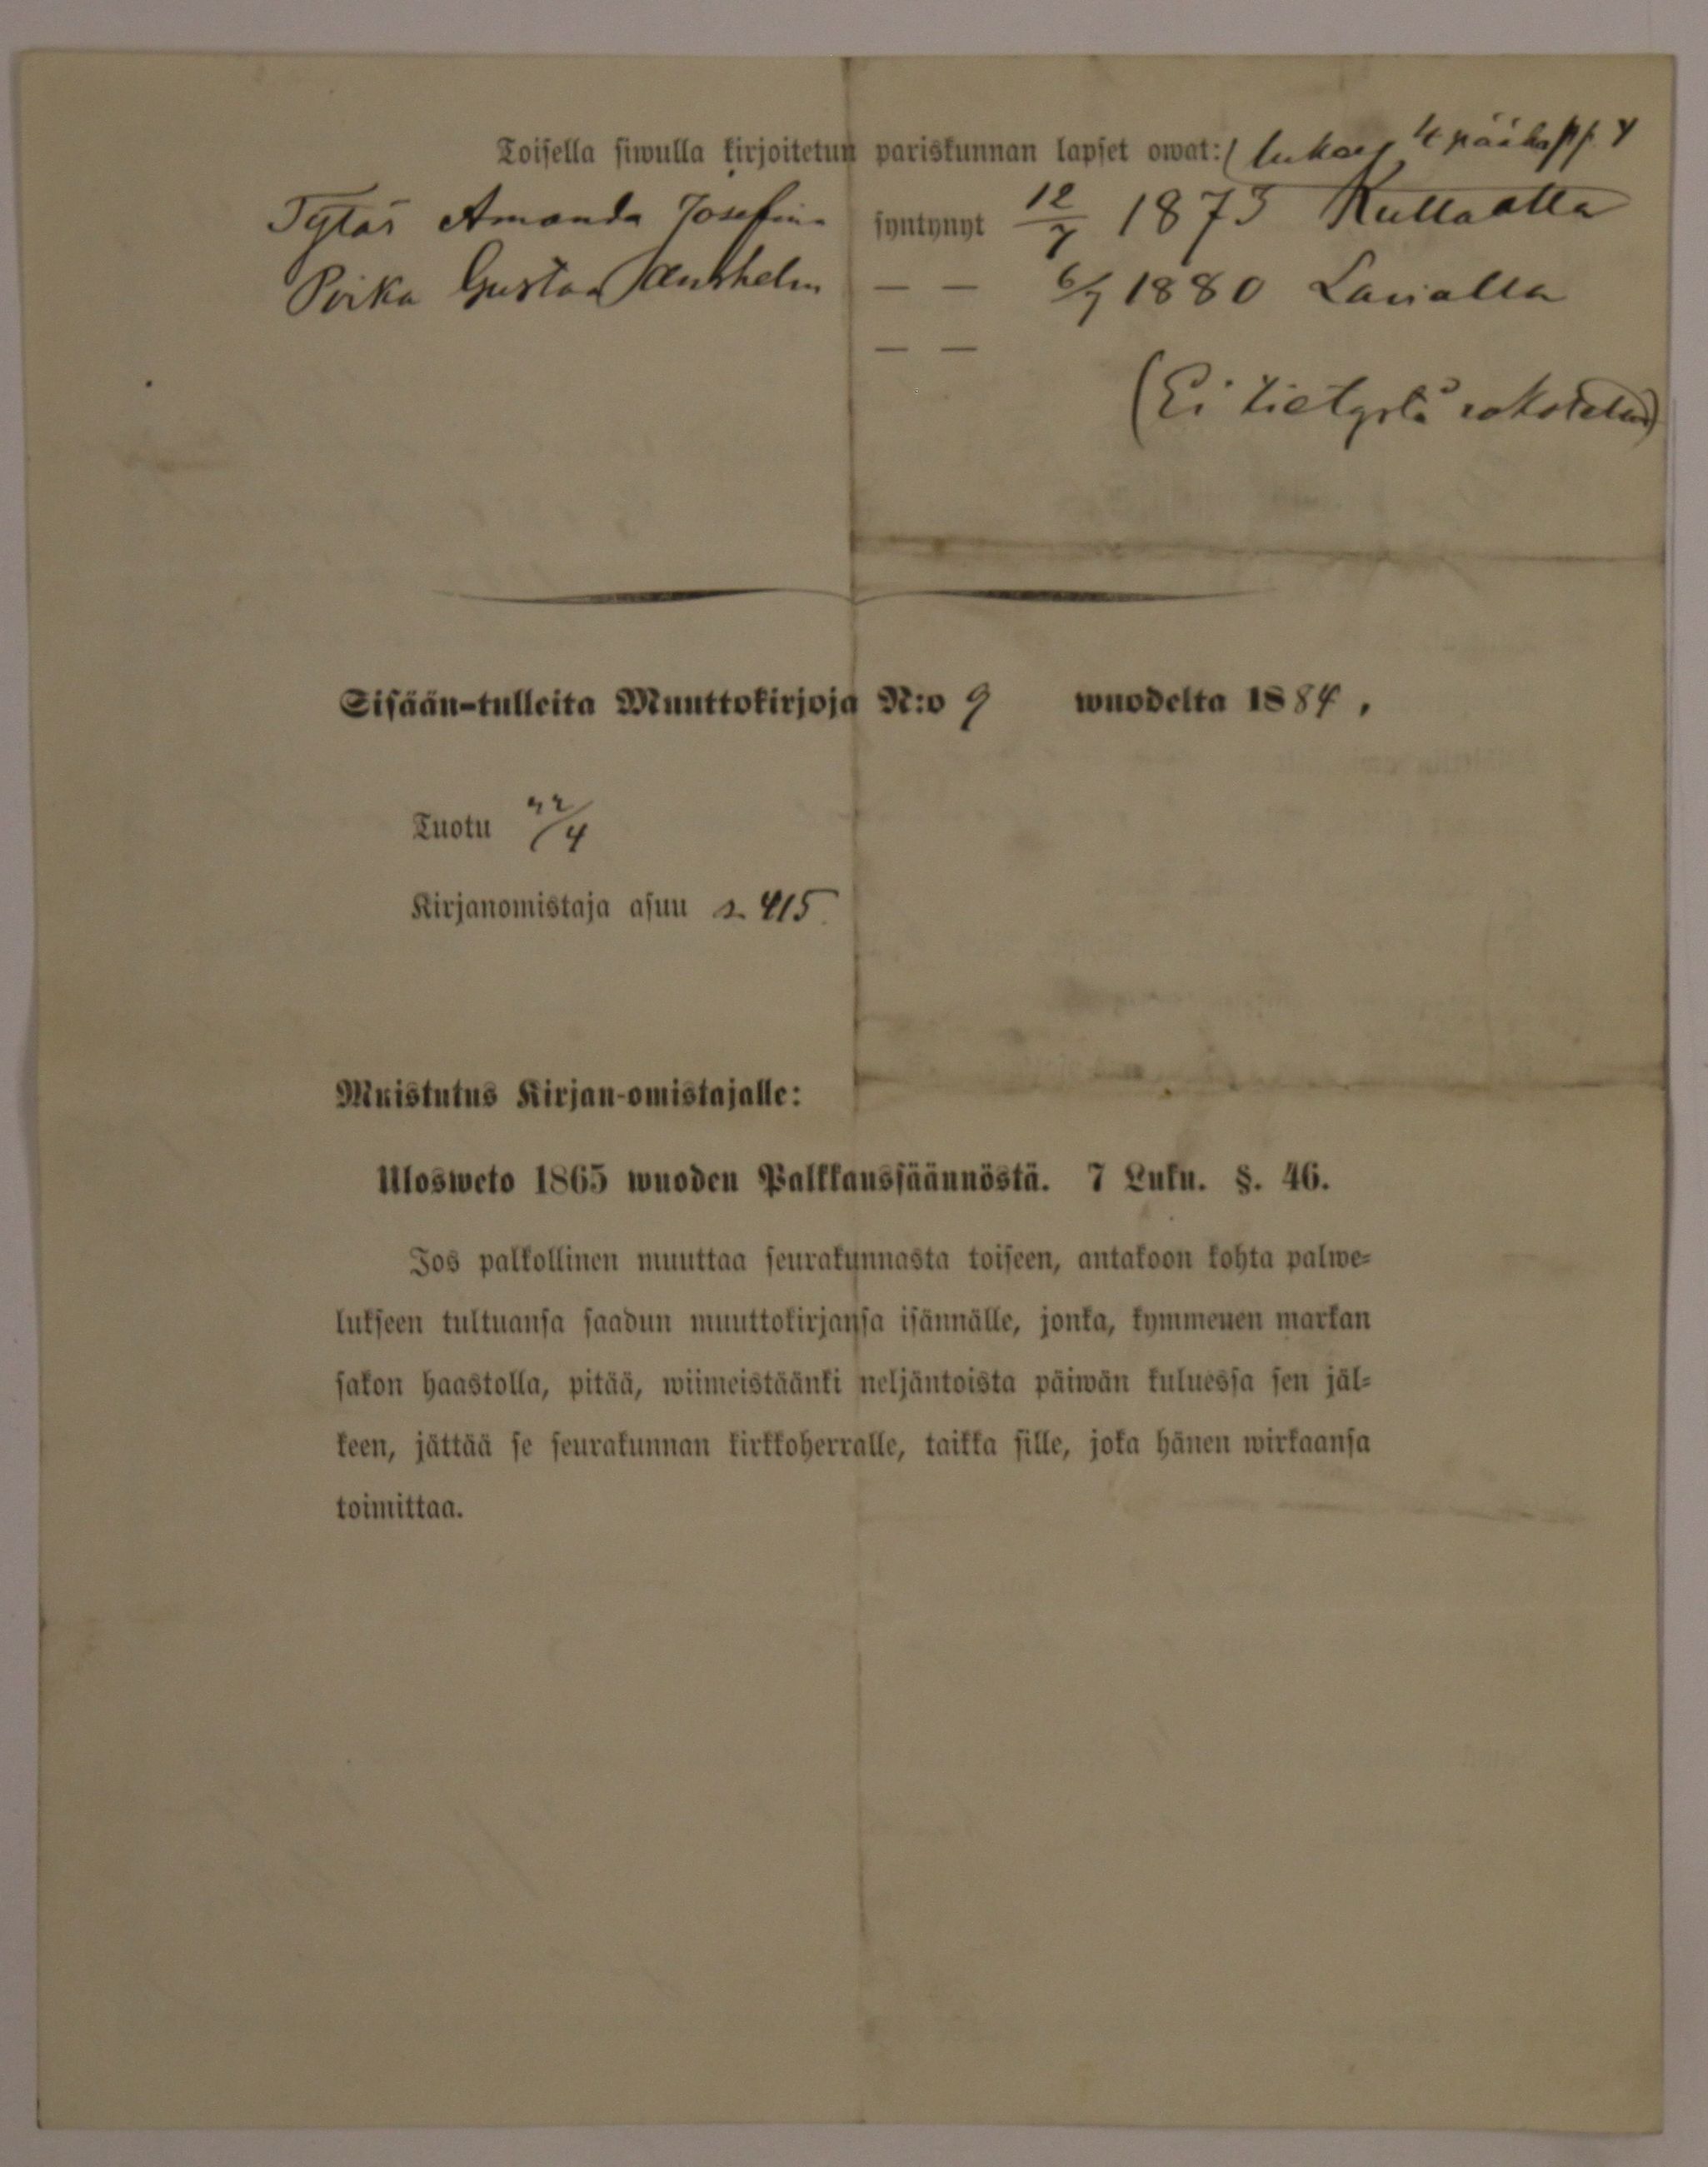 Toisella siwulla kirjoitetun pariskunnan lapset owat: (lukee 4 pääkapp. 4
Tytär Amanda Josefina syntynyt 12/7 1873 Kullaalla
Poika Gustaa Anshelm — — 6/7 1880 Lavialla
— —
(Ei tietystä rokotetut)
Sisään-tulleita Muuttokirjoja N:o 9 wuodelta 1884.
Tuotu 22/4
Kirjanomistaja asuu s. 415.
Muistutus Kirjan-omistajalle:
Ulosweto 1865 wuoden Palkkaussäännöstä. 7 Luku. §. 46.
Jos palkollinen muuttaa seurakunnasta toiseen, antakoon kohta palwe-
lukseen tultuansa saadun muuttokirjansa isännälle, jonka, kymmenen markan
sakon haastolla, pitää, wiimeistäänki neljäntoista päiwän kuluessa sen jäl-
keen, jättää se seurakunnan kirkkoherralle, taikka sille, joka hänen wirkaansa
toimittaa.